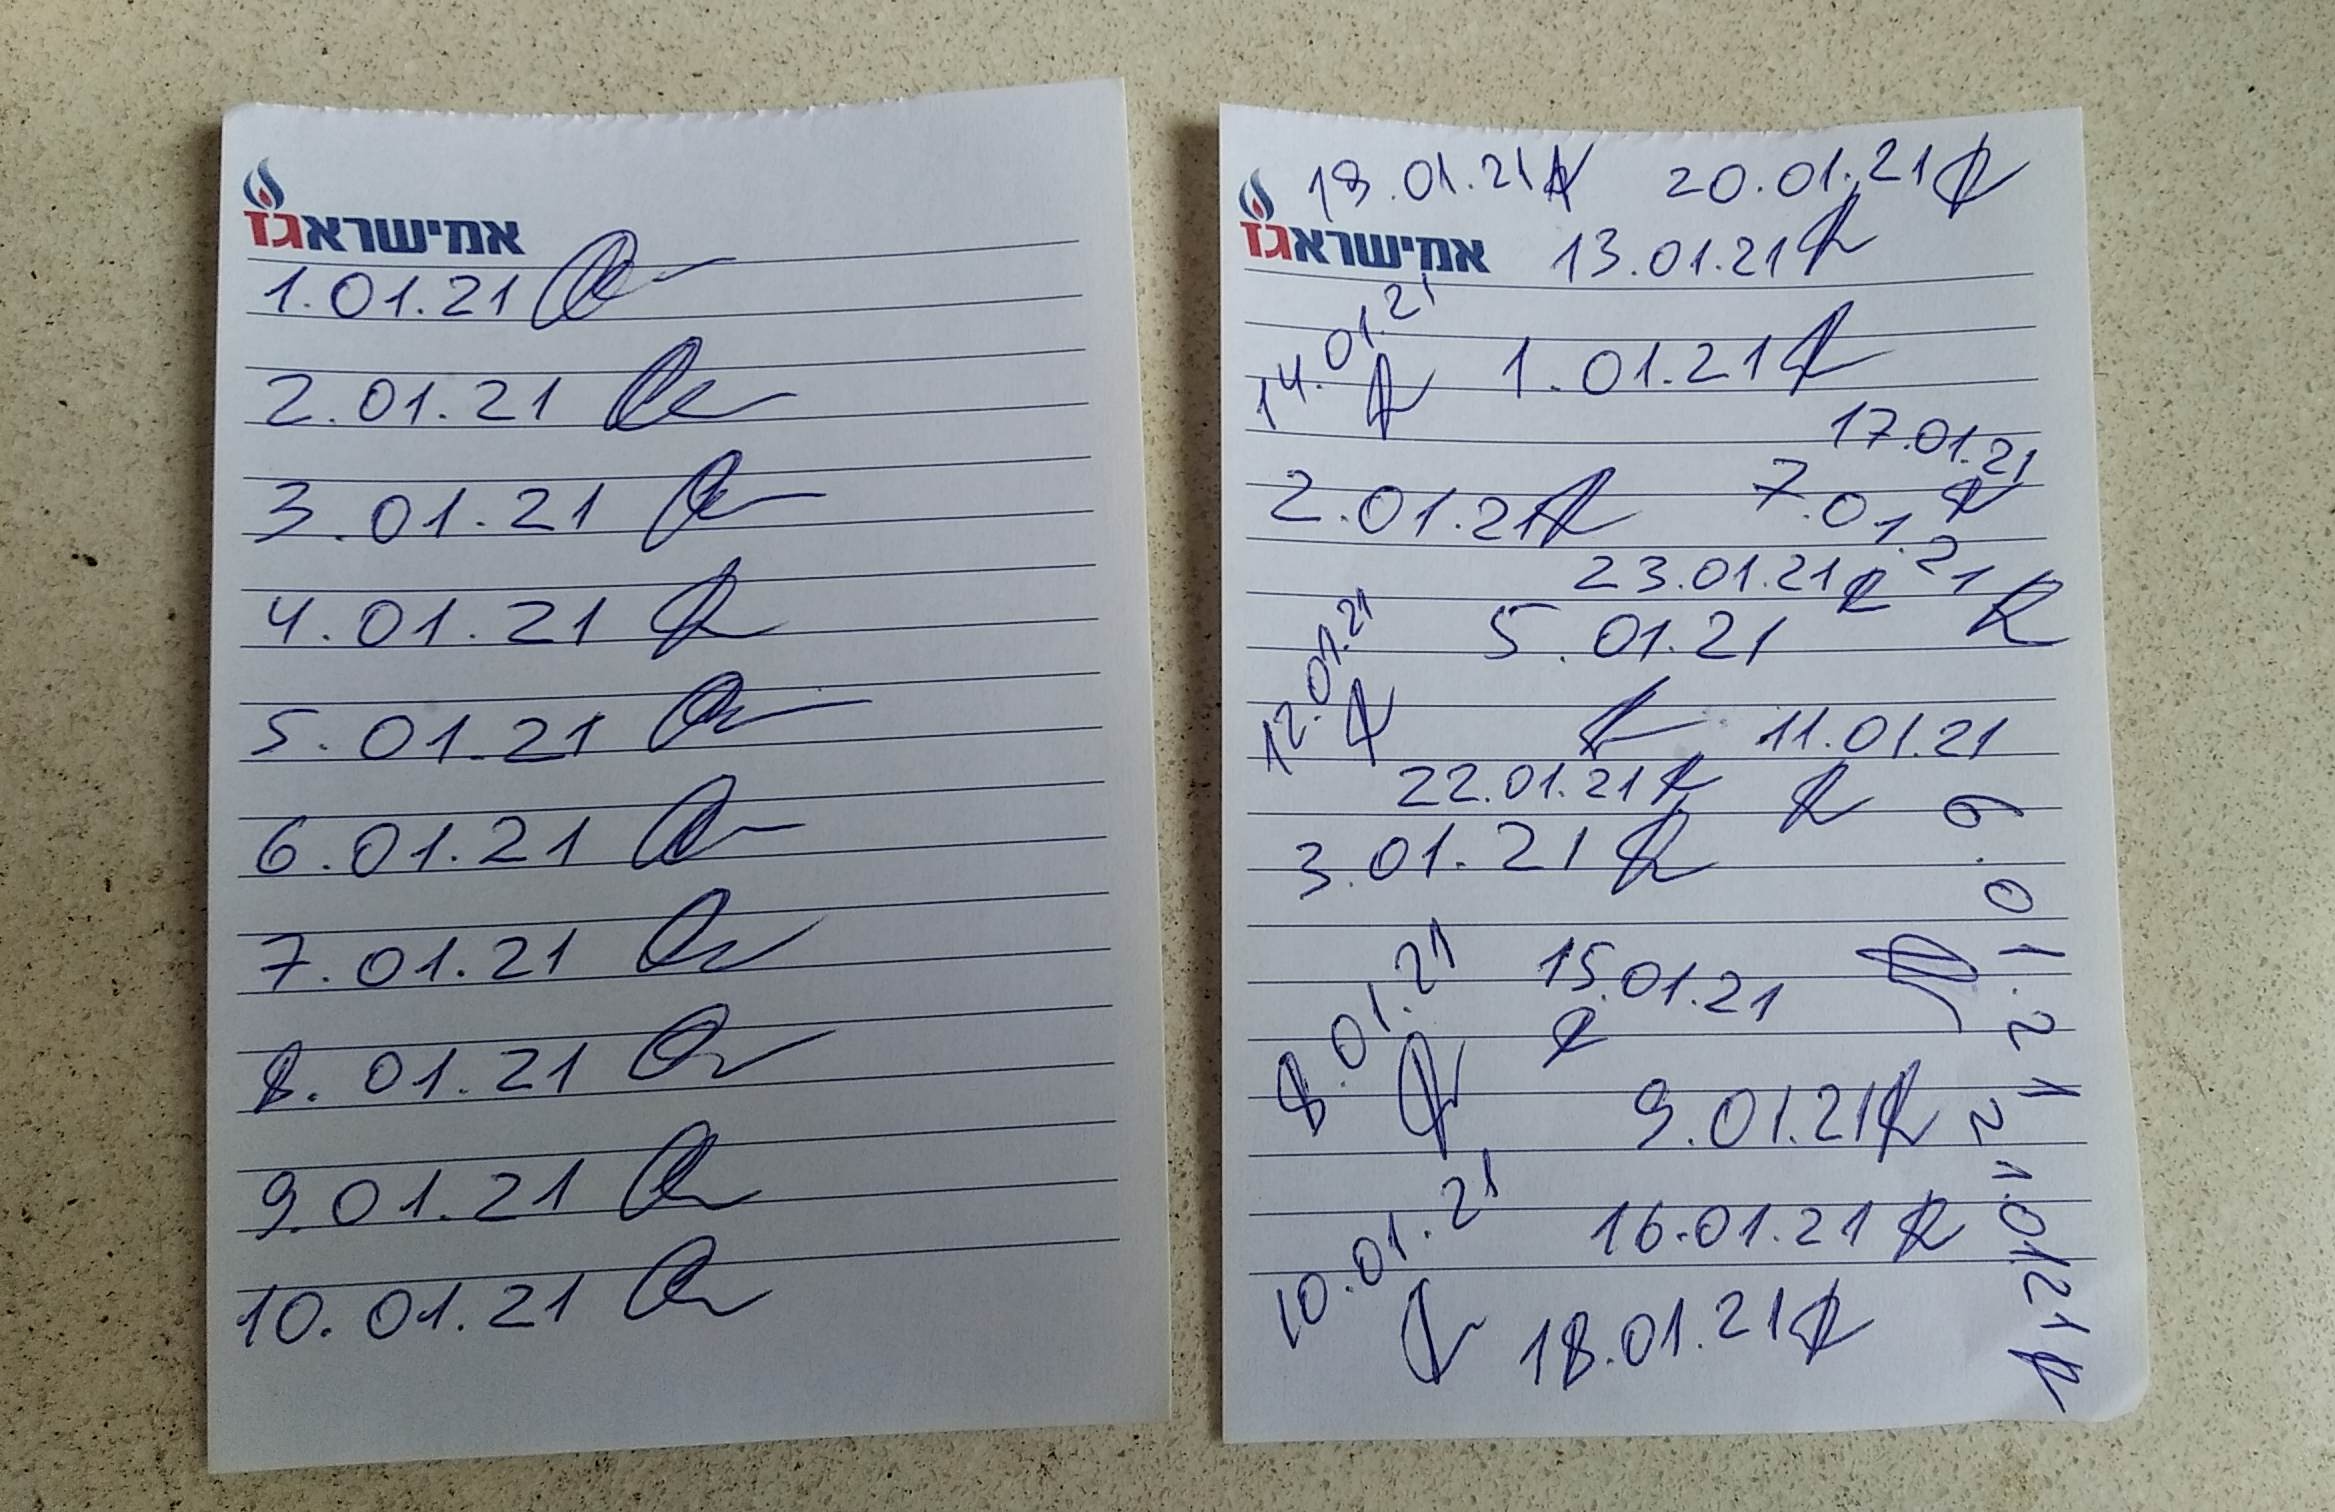 אמישראגז
1.01.21
2.01.21
3.01.21
4.01.21
5.01.21
6.01.21
7.01.21
8.01.21
9.01.21
10.01.21
19.01.21 20.01.21
אמישראגז 13.01.21
14.01.21 1.01.21
17.01.21
2.01.21 7.01.21
23.01.21
12.01.21 5.01.21
11.01.21
22.01.21
3.01.21 6.01.21
8.01.21 15.01.21
9.01.21
10.01.21 16.01.21 21.01.21
18.01.21